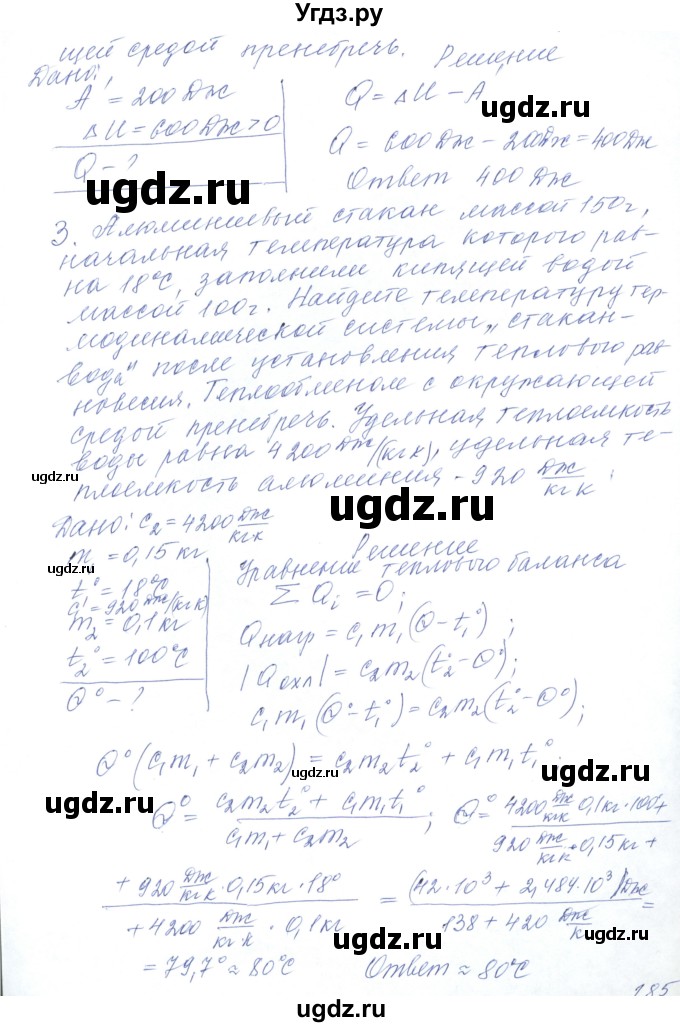 Угдз.ру
щей средой пренебречь.
Дано:
Решение
A = 200 Дж
ΔU = 600 Дж > 0
Q - ?
Q = ΔU - A
Q = 600 Дж - 200 Дж = 400 Дж
Ответ 400 Дж
ugdz.ru
ugdz.ru
3. Алюминиевый стакан массой 150 г,
начальная температура которого рав-
на 18°C, заполнили кипящей водой
массой 100 г. Найдите температуру тер-
модинамической системы „стакан-
вода" после установления теплового рав
новесия. Теплообменом с окружающей
средой пренебречь. Удельная теплоемкость
воды равна 4200 Дж/(кг К), удельная те-
плоемкость алюминия - 920 Дж/кг К.
ugdz.ru
ugdz.ru
Дано: c₂ = 4200 Дж/кг К
m = 0,15 кг
t₁° = 18°C
c₁ = 920 Дж/(кг К)
m₂ = 0,1 кг
t₂° = 100°C
Θ° - ?
ugdz.ru
ugdz.ru
Решение
Уравнение теплового баланса
Σ Qᵢ = 0;
Qнагр = c₁m₁(Θ - t₁°);
|Qохл| = c₂m₂(t₂° - Θ°);
c₁m₁(Θ° - t₁°) = c₂m₂(t₂° - Θ°);
ugdz.ru
Θ°(c₁m₁ + c₂m₂) = c₂m₂t₂° + c₁m₁t₁°;
ugdz.ru
ugdz.ru
ugdz.ru
Θ° = (c₂m₂t₂° + c₁m₁t₁°)/(c₁m₁ + c₂m₂); Θ° = (4200 Дж/кг К · 0,1 кг · 100° +)/(920 Дж/кг К · 0,15 кг +)
(+ 920 Дж/кг К · 0,15 кг · 18°)/(+ 4200 Дж/кг К · 0,1 кг) = ((42 · 10³ + 2,484 · 10³) Дж)/(138 + 420 Дж/К) =
ugdz.ru
ugdz.ru
= 79,7° ≈ 80°C Ответ ≈ 80°C
185
ugdz.ru